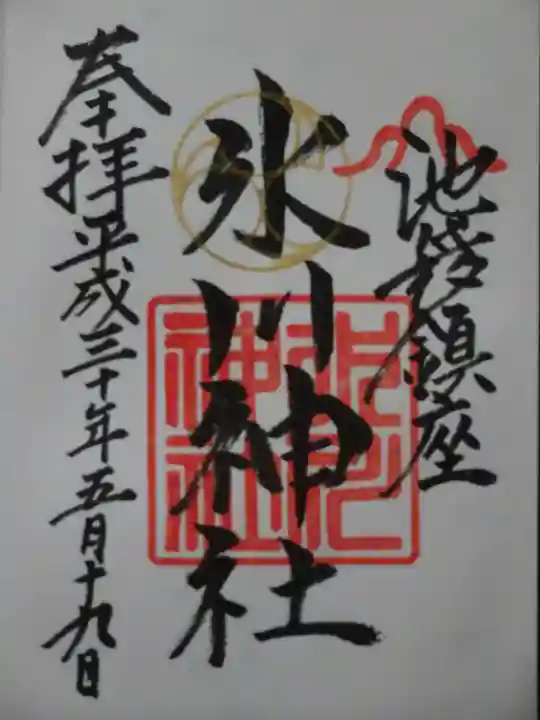 池袋鎮座
氷川神社
奉拝 平成三十年五月十九日
氷川
神社